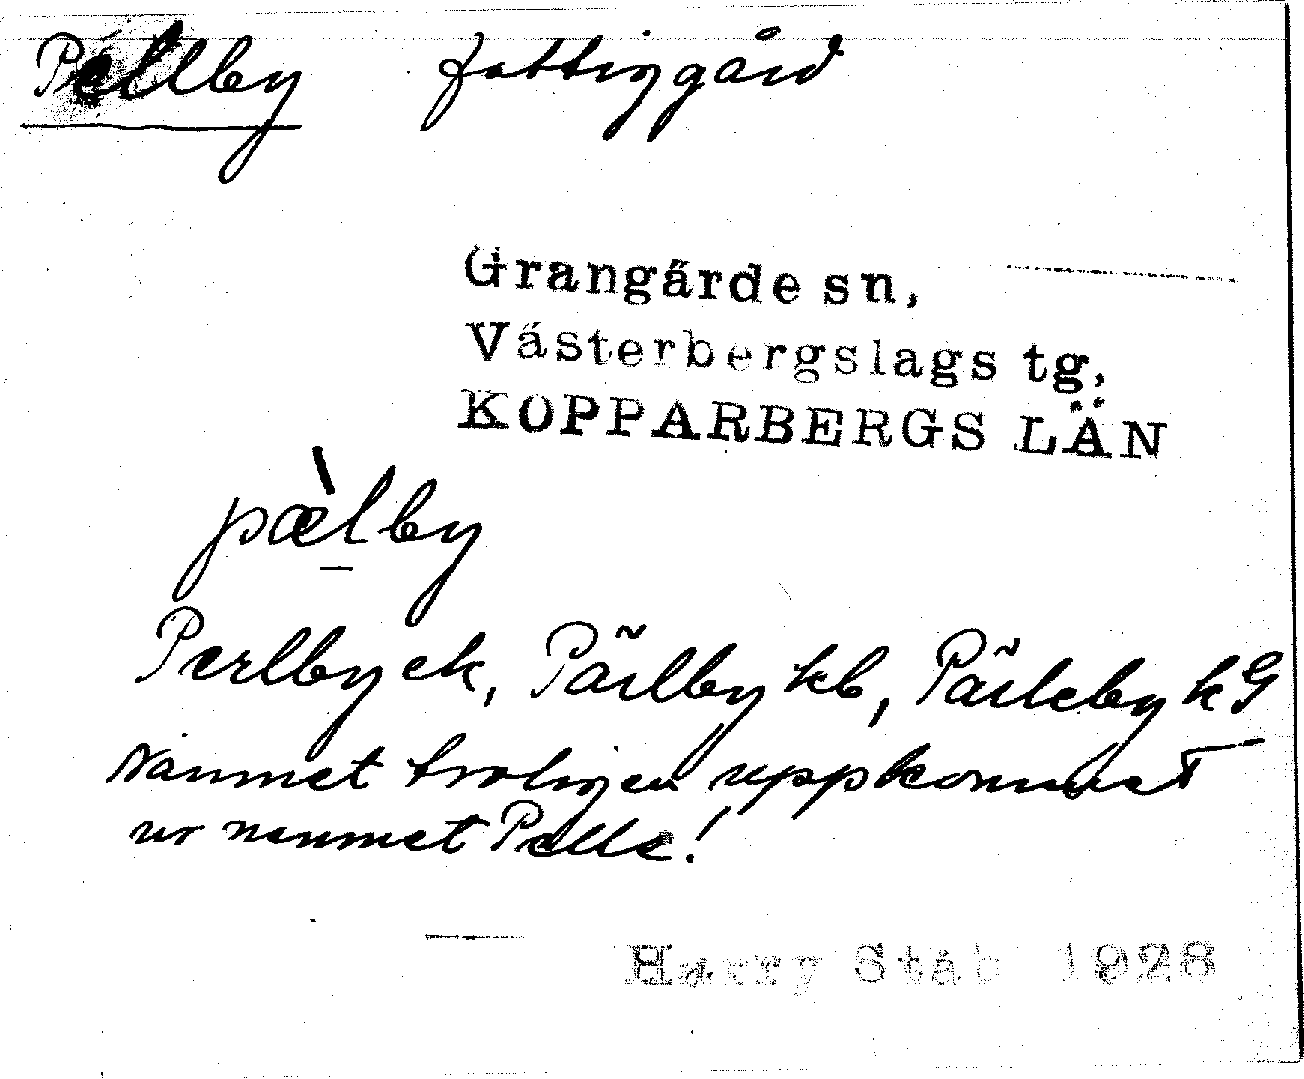 Pellby fattiggård
Grangärde sn,
Västerbergslags tg,
KOPPARBERGS LÄN
pæ̀lby
Perlby ek, Pärlby kb, Pärleby k G
Namnet troligen uppkommet
ur namnet Pelle!
Harry Ståb 1928